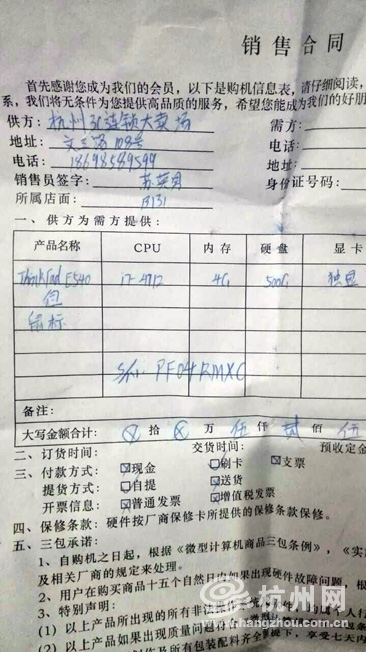 销售合同
首先感谢您成为我们的会员，以下是购机信息表，请仔细阅读，
系，我们将无条件为您提供高品质的服务，希望您能成为我们的好朋
供方：杭州 连锁大卖场 需方：
地址：文三路108号 电话：
电话：18698589599 地址：
销售员签字： 身份证号码：
所属店面：B131
一、供方为需方提供：
产品名称 CPU 内存 硬盘 显卡
ThinkPad E540 i7-4712 4G 500G 独显
包
鼠标
S/N: PF04RMXC
备注：
大写金额合计：⊗拾⊗万伍仟贰佰伍
二、订货时间： 交货时间： 预收定金
三、付款方式：现金 刷卡 支票
提货方式：自提 送货
开票信息：普通发票 增值税发票
四、保修条款：硬件按厂商保修卡所提供的保修条款保修。
五、三包承诺：
1、自购机之日起，根据《微型计算机商品三包条例》，《实
及相关厂商的规定来处理。
2、用户在购买商品十五个自然日内如果出现硬件故障问题，根
3、特别声明：
(1) 以上产品所出现的所有非
(2) 以上产品如果出现质量问题
杭州网
www.hangzhou.com.cn